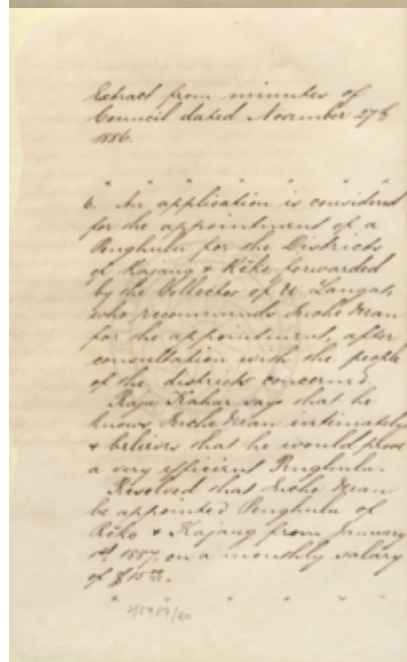 Extract from minutes of
Council dated November 27th
1886.
" " " " " "
6. An application is considered
for the appointment of a
Penghulu for the Districts
of Kajang & Rĕko, forwarded
by the Collector of U. Langat,
who recommends Inche Man
for the appointment, after
consultation with the people
of the districts concerned.
Raja Kahar says that he
knows Inche Man intimately
& believes that he would prove
a very efficient Penghulu.
Resolved that Inche Man
be appointed Penghulu of
Rĕko & Kajang from January
1st 1887, on a monthly salary
of $15.00.
" " " " " "